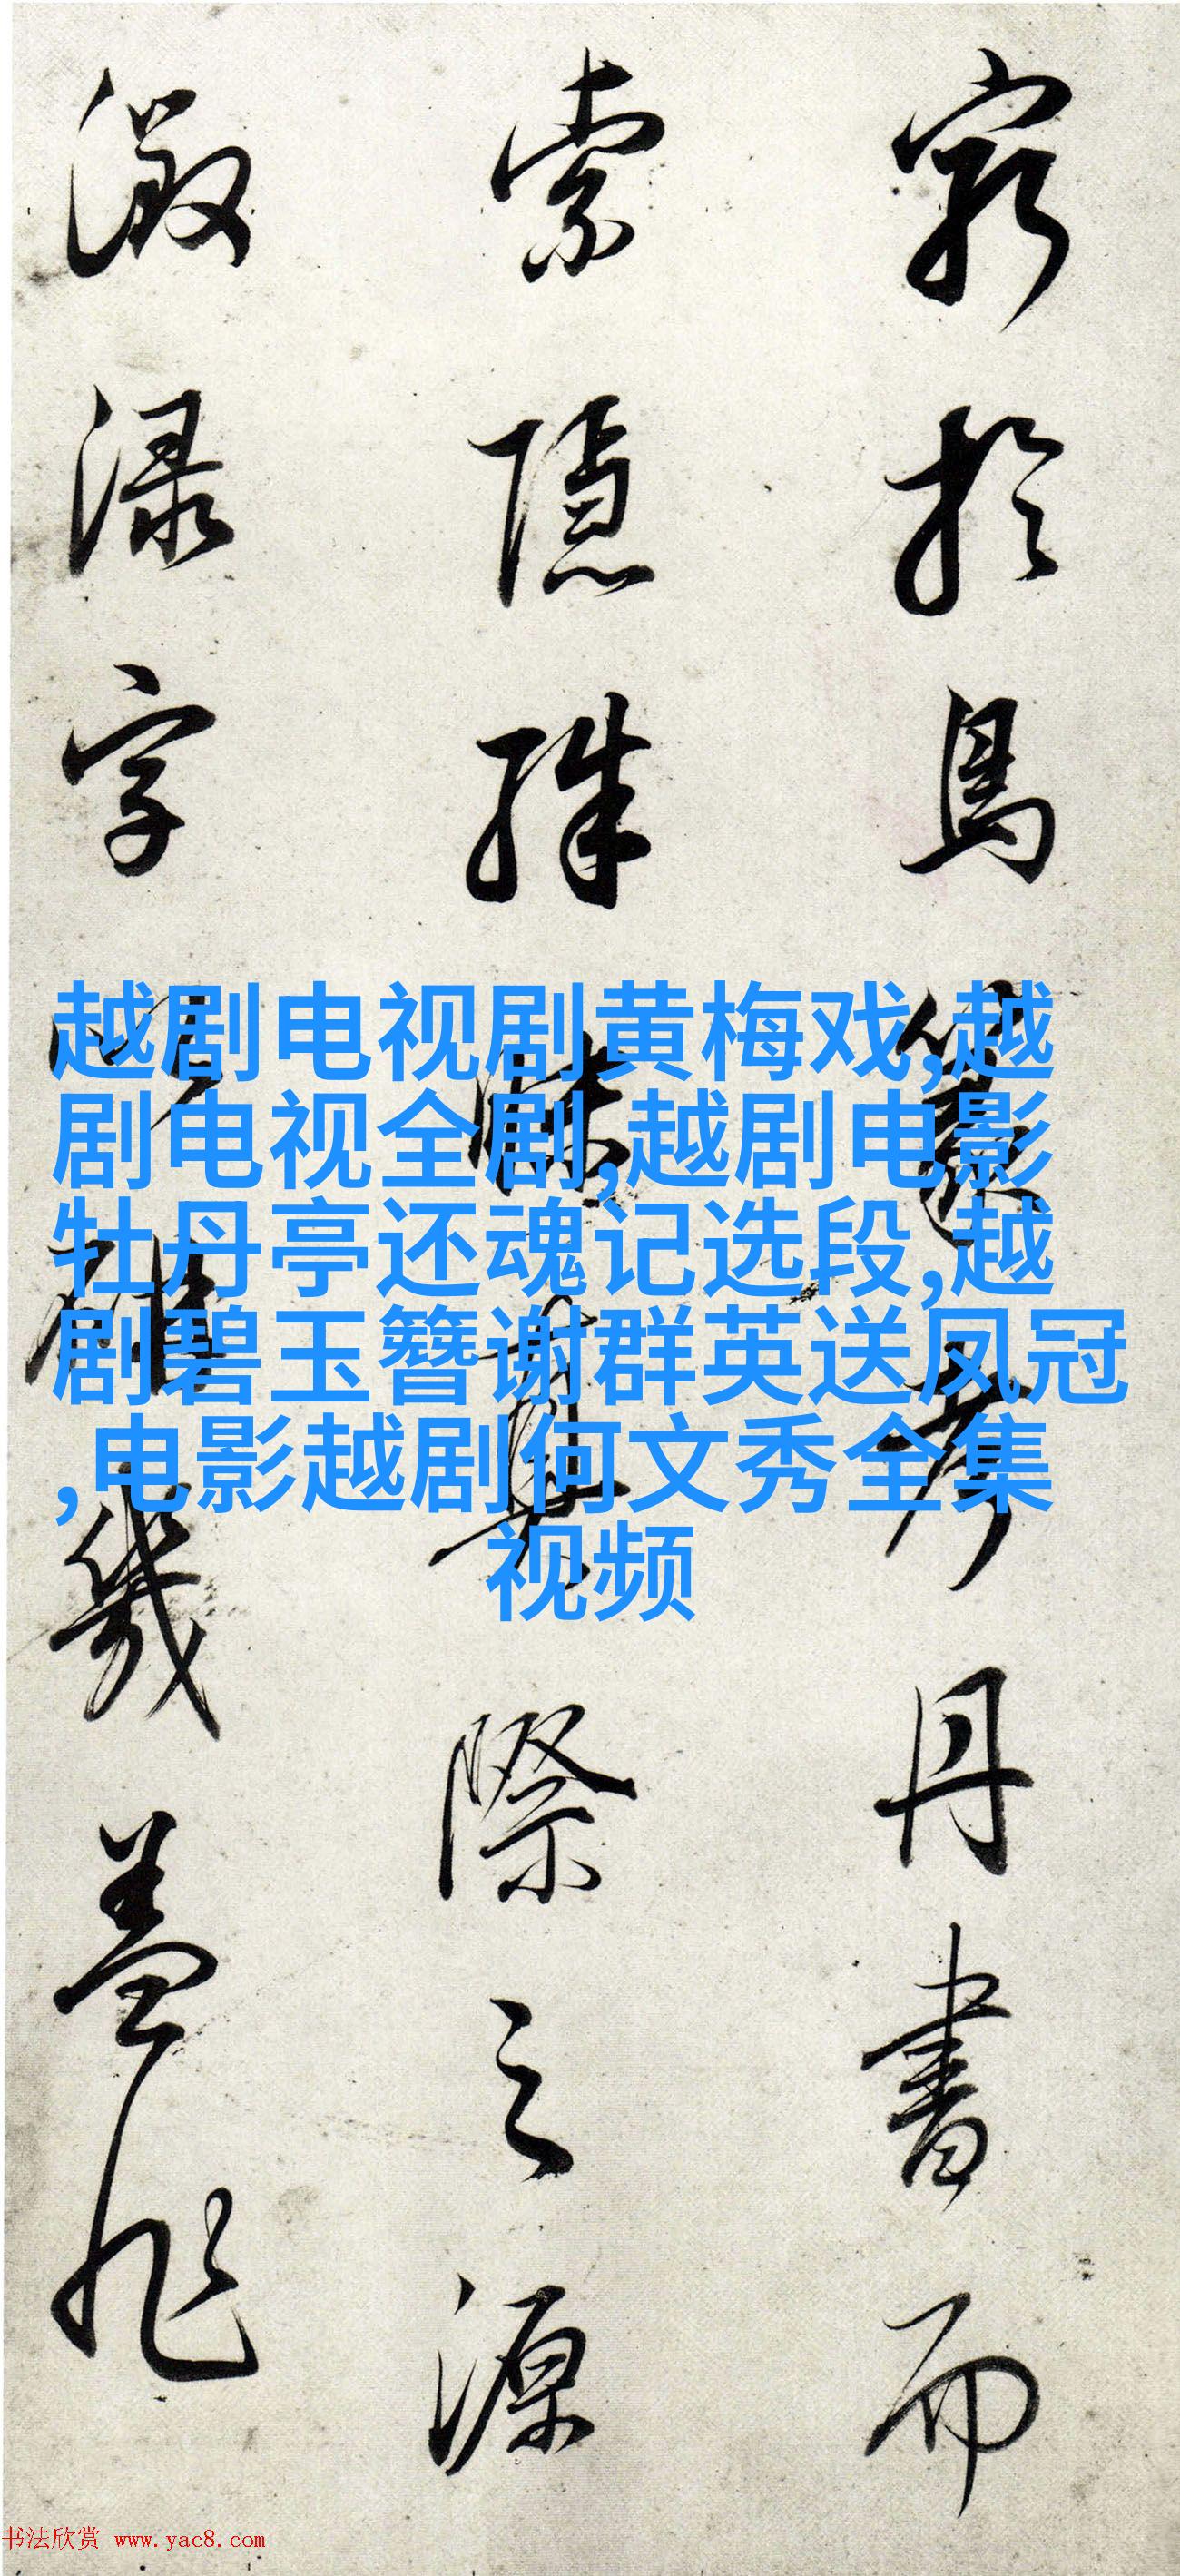 窮於鳥篆考丹書而
索隱殊昧真際之源
渌字雖幾蓋非
越剧电视剧黄梅戏,越
剧电视全剧,越剧电影
牡丹亭还魂记选段,越
剧碧玉簪谢群英送凤冠
,电影越剧何文秀全集
视频
书法欣赏 www.yac8.com